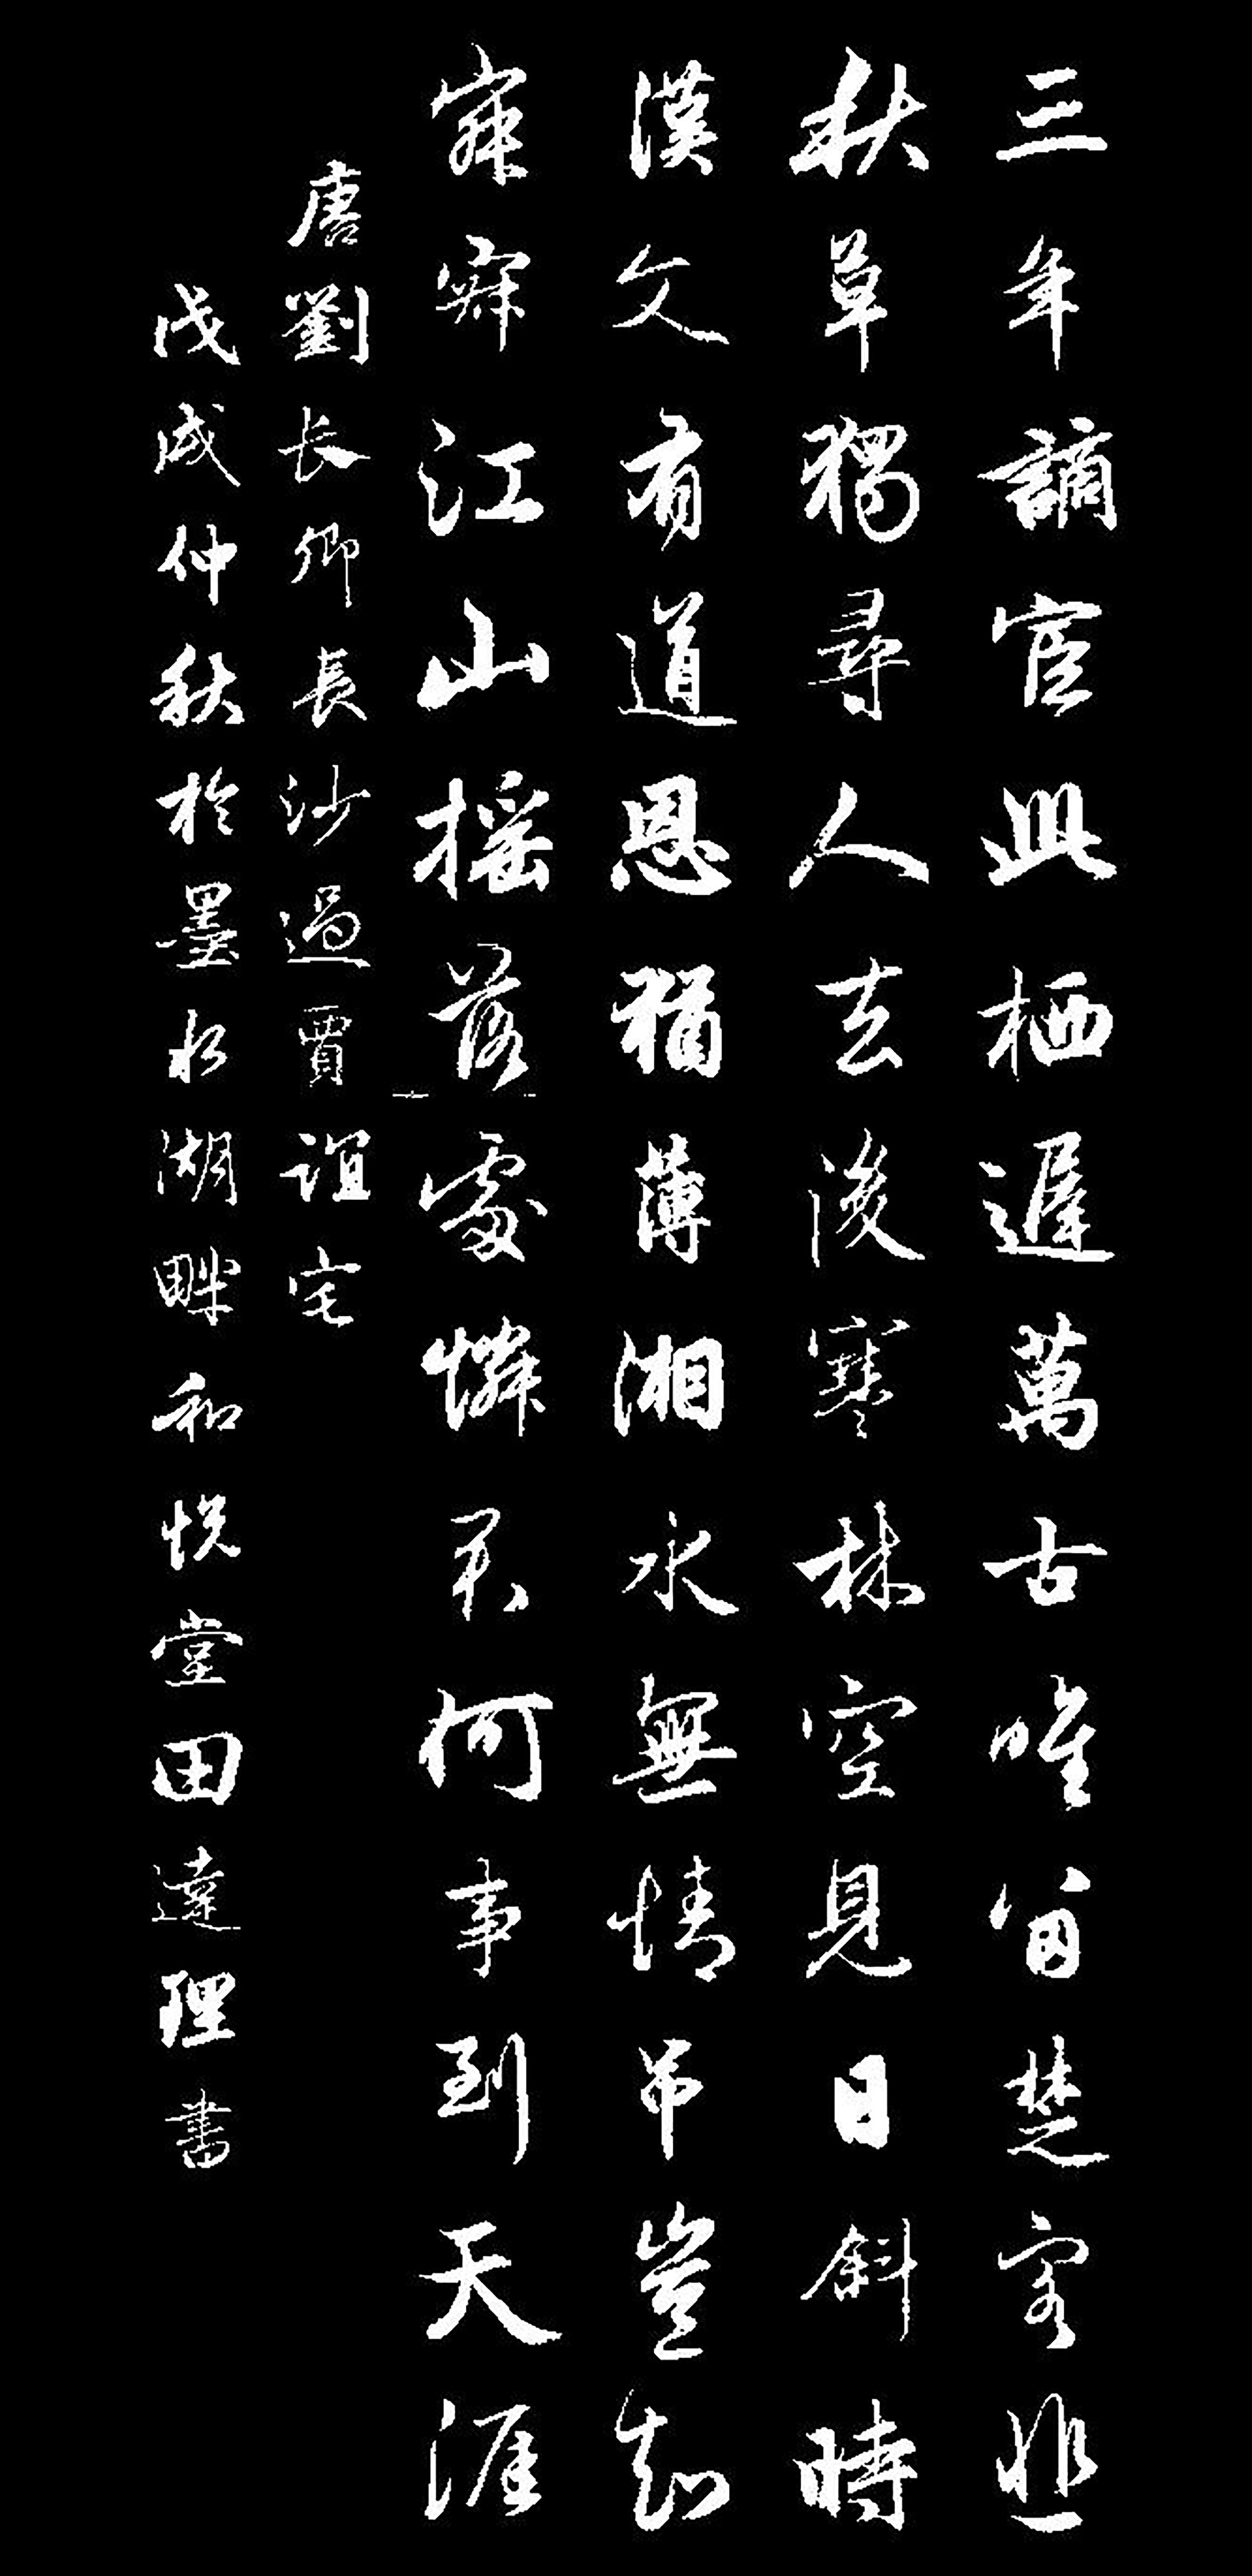 三年謫宦此栖遲萬古唯留楚客悲
秋草獨尋人去後寒林空見日斜時
漢文有道恩猶薄湘水無情吊豈知
寂寂江山摇落處憐君何事到天涯
唐劉長卿長沙過賈誼宅
戊戌仲秋於墨水湖畔和悅堂田達理書